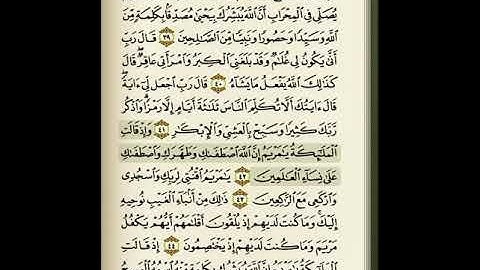 يُصَلِّي فِي ٱلْمِحْرَابِ أَنَّ ٱللَّهَ يُبَشِّرُكَ بِيَحْيَىٰ مُصَدِّقًۢا بِكَلِمَةٍ مِّنَ
ٱللَّهِ وَسَيِّدًا وَحَصُورًا وَنَبِيًّا مِّنَ ٱلصَّٰلِحِينَ ٣٩ قَالَ رَبِّ
أَنَّىٰ يَكُونُ لِي غُلَٰمٌ وَقَدْ بَلَغَنِيَ ٱلْكِبَرُ وَٱمْرَأَتِي عَاقِرٌ قَالَ
كَذَٰلِكَ ٱللَّهُ يَفْعَلُ مَا يَشَآءُ ٤٠ قَالَ رَبِّ ٱجْعَل لِّيٓ ءَايَةً
قَالَ ءَايَتُكَ أَلَّا تُكَلِّمَ ٱلنَّاسَ ثَلَٰثَةَ أَيَّامٍ إِلَّا رَمْزًا وَٱذْكُر
رَّبَّكَ كَثِيرًا وَسَبِّحْ بِٱلْعَشِيِّ وَٱلْإِبْكَٰرِ ٤١ وَإِذْ قَالَتِ
ٱلْمَلَٰٓئِكَةُ يَٰمَرْيَمُ إِنَّ ٱللَّهَ ٱصْطَفَىٰكِ وَطَهَّرَكِ وَٱصْطَفَىٰكِ
عَلَىٰ نِسَآءِ ٱلْعَٰلَمِينَ ٤٢ يَٰمَرْيَمُ ٱقْنُتِي لِرَبِّكِ وَٱسْجُدِي
وَٱرْكَعِي مَعَ ٱلرَّٰكِعِينَ ٤٣ ذَٰلِكَ مِنْ أَنۢبَآءِ ٱلْغَيْبِ نُوحِيهِ
إِلَيْكَ وَمَا كُنتَ لَدَيْهِمْ إِذْ يُلْقُونَ أَقْلَٰمَهُمْ أَيُّهُمْ يَكْفُلُ
مَرْيَمَ وَمَا كُنتَ لَدَيْهِمْ إِذْ يَخْتَصِمُونَ ٤٤ إِذْ قَالَتِ
ٱلْمَلَٰٓئِكَةُ يَٰمَرْيَمُ إِنَّ ٱللَّهَ يُبَشِّرُكِ بِكَلِمَةٍ مِّنْهُ ٱسْمُهُ ٱلْمَسِيحُ